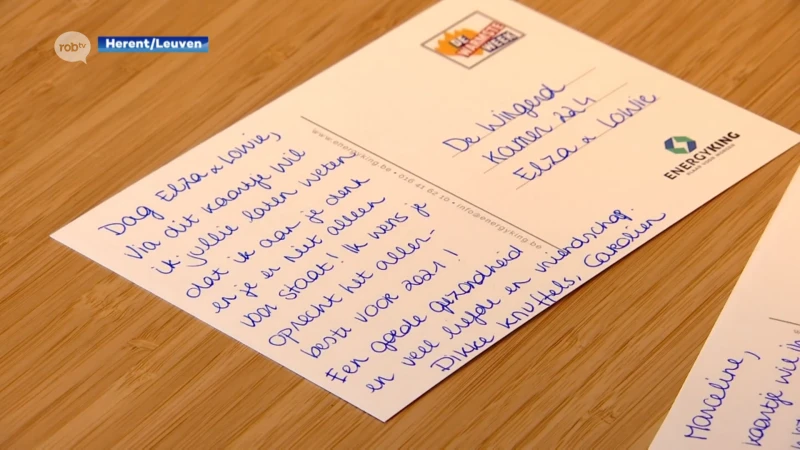 robtv
Herent/Leuven
DE
WARMSTE
WEEK
De Wingerd
Kamer 224
Elza & Lowie
ENERGYKING
www.energyking.be • 016 41 62 10 • info@energyking.be
Dag Elza & Lowie,
Via dit kaartje wil
ik jullie laten weten
dat ik aan je denk
en je er niet alleen
voor staat! Ik wens je
oprecht het aller-
beste voor 2021!
Een goede gezondheid
en veel liefde en vriendschap.
Dikke knuffels, Carolien
Marceline,
kaartje wil ik